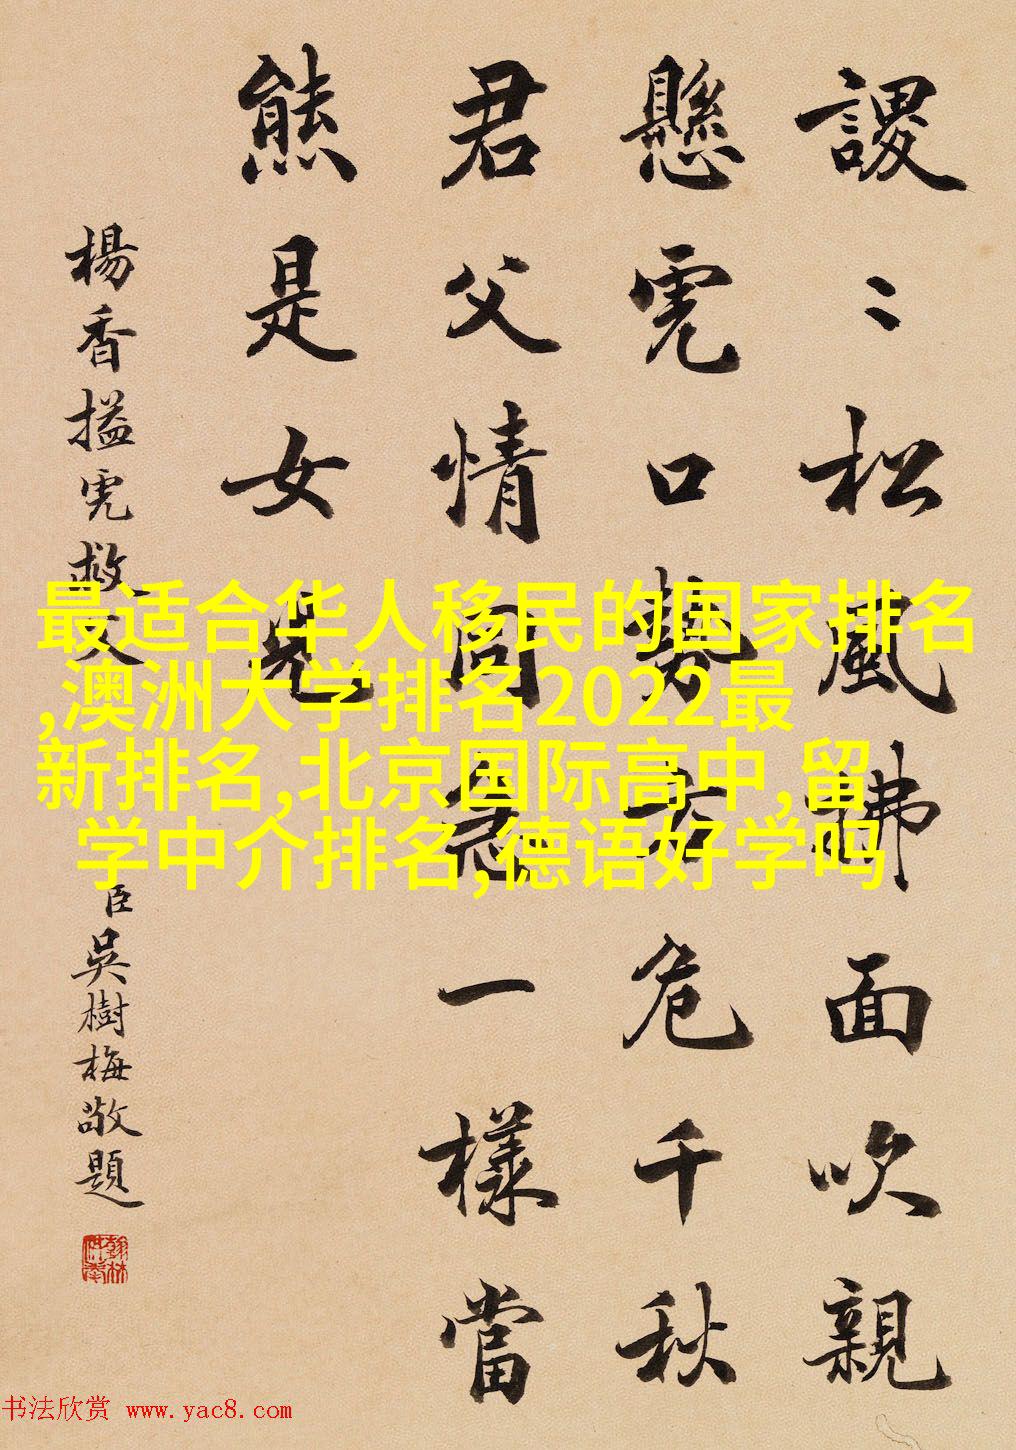 謖〻松風拂面吹親
懸虎口勢方危千秋
君父情同急一樣當
熊是女兒
楊香搤虎救父
臣吳樹梅敬題
最适合华人移民的国家排名
,澳洲大学排名2022最
新排名,北京国际高中,留
学中介排名,德语好学吗
书法欣赏 www.yac8.com